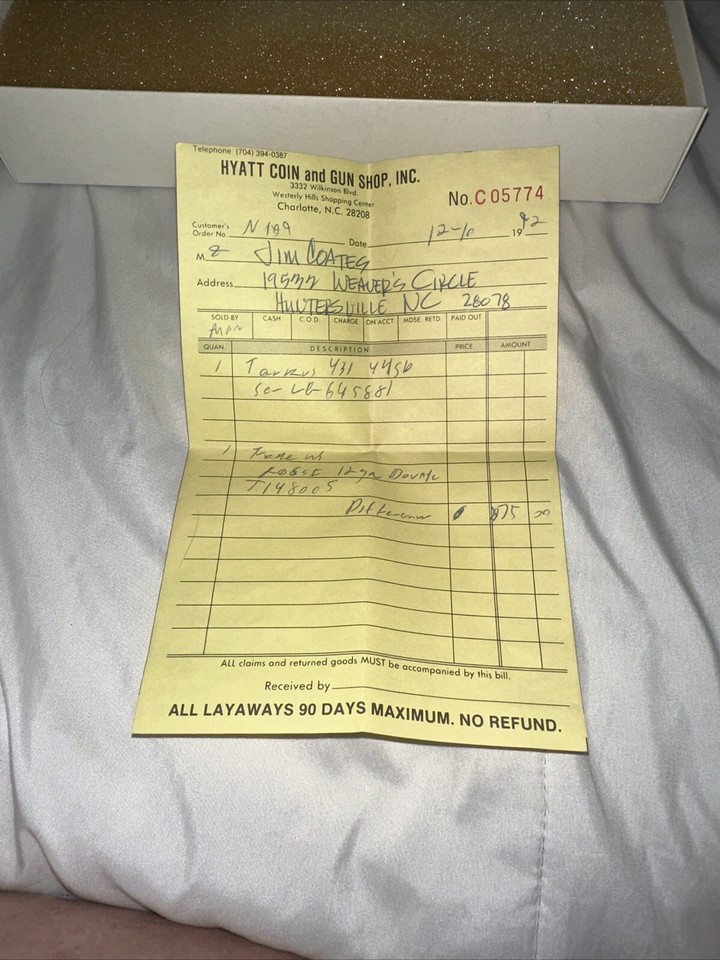 Telephone: (704) 394-0387
HYATT COIN and GUN SHOP, INC.
3332 Wilkinson Blvd.
Westerly Hills Shopping Center
Charlotte, N.C. 28208
No. C 05774
Customer's Order No. N 189 Date 12-10 19 92
M JIM COATES
Address 19532 WEAVER'S CIRCLE
HUNTERSVILLE NC 28078
SOLD BY CASH C.O.D. CHARGE ON ACCT. MDSE. RETD. PAID OUT
QUAN. DESCRIPTION PRICE AMOUNT
1 Taurus 431 44Sp
Ser LB 645881
1 Trade in
12ga Double
T148005
Difference 75
ALL claims and returned goods MUST be accompanied by this bill.
Received by
ALL LAYAWAYS 90 DAYS MAXIMUM. NO REFUND.